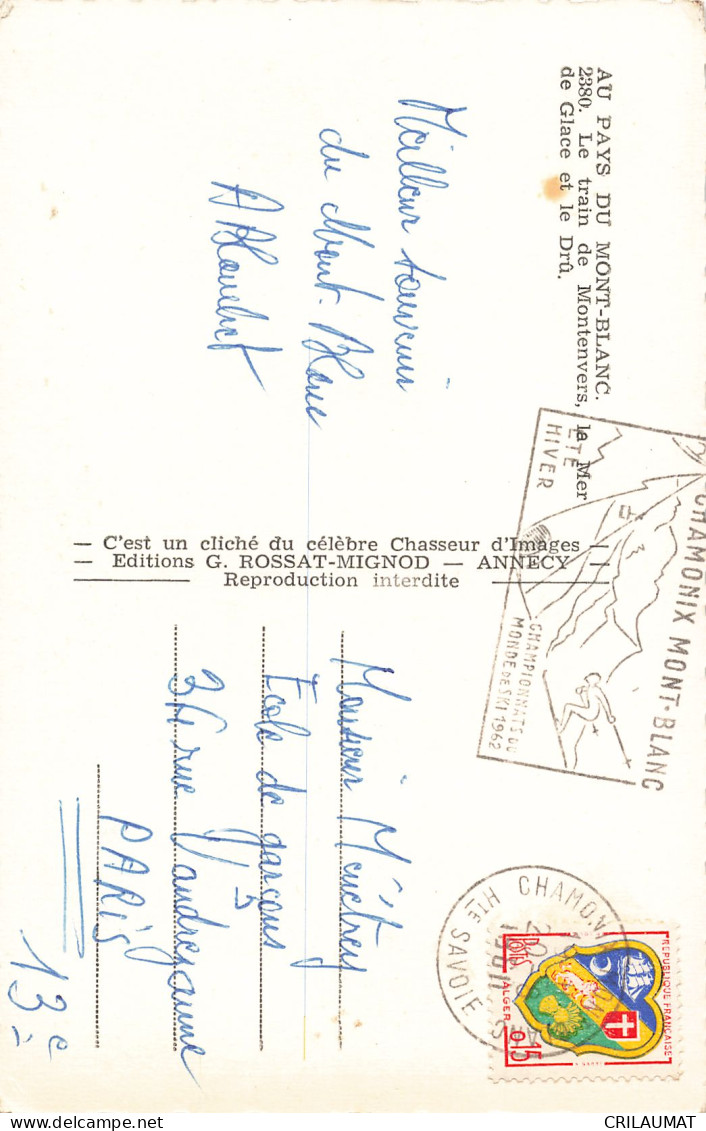 AU PAYS DU MONT-BLANC.
2380. Le train de Montenvers, la Mer
de Glace et le Drû.
Meilleur souvenir
du Mont-Blanc
A Blanchet
— C'est un cliché du célèbre Chasseur d'Images —
— Editions G. ROSSAT-MIGNOD — ANNECY —
Reproduction interdite
ÉTÉ
HIVER
CHAMONIX MONT-BLANC
CHAMPIONNATS DU
MONDE DE SKI 1962
CHAMONIX
HTE SAVOIE
REPUBLIQUE FRANÇAISE
POSTES
ALGER
0,15
Monsieur
Ecole de garçons
34 rue Vandrezanne
PARIS
13e
CRILAUMAT